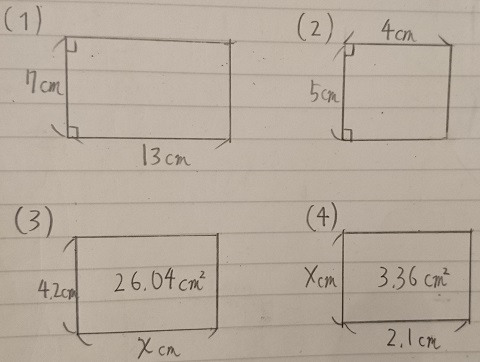 (1)
7cm
13cm
(2)
4cm
5cm
(3)
4.2cm
26.04cm²
xcm
(4)
xcm
3.36cm²
2.1cm